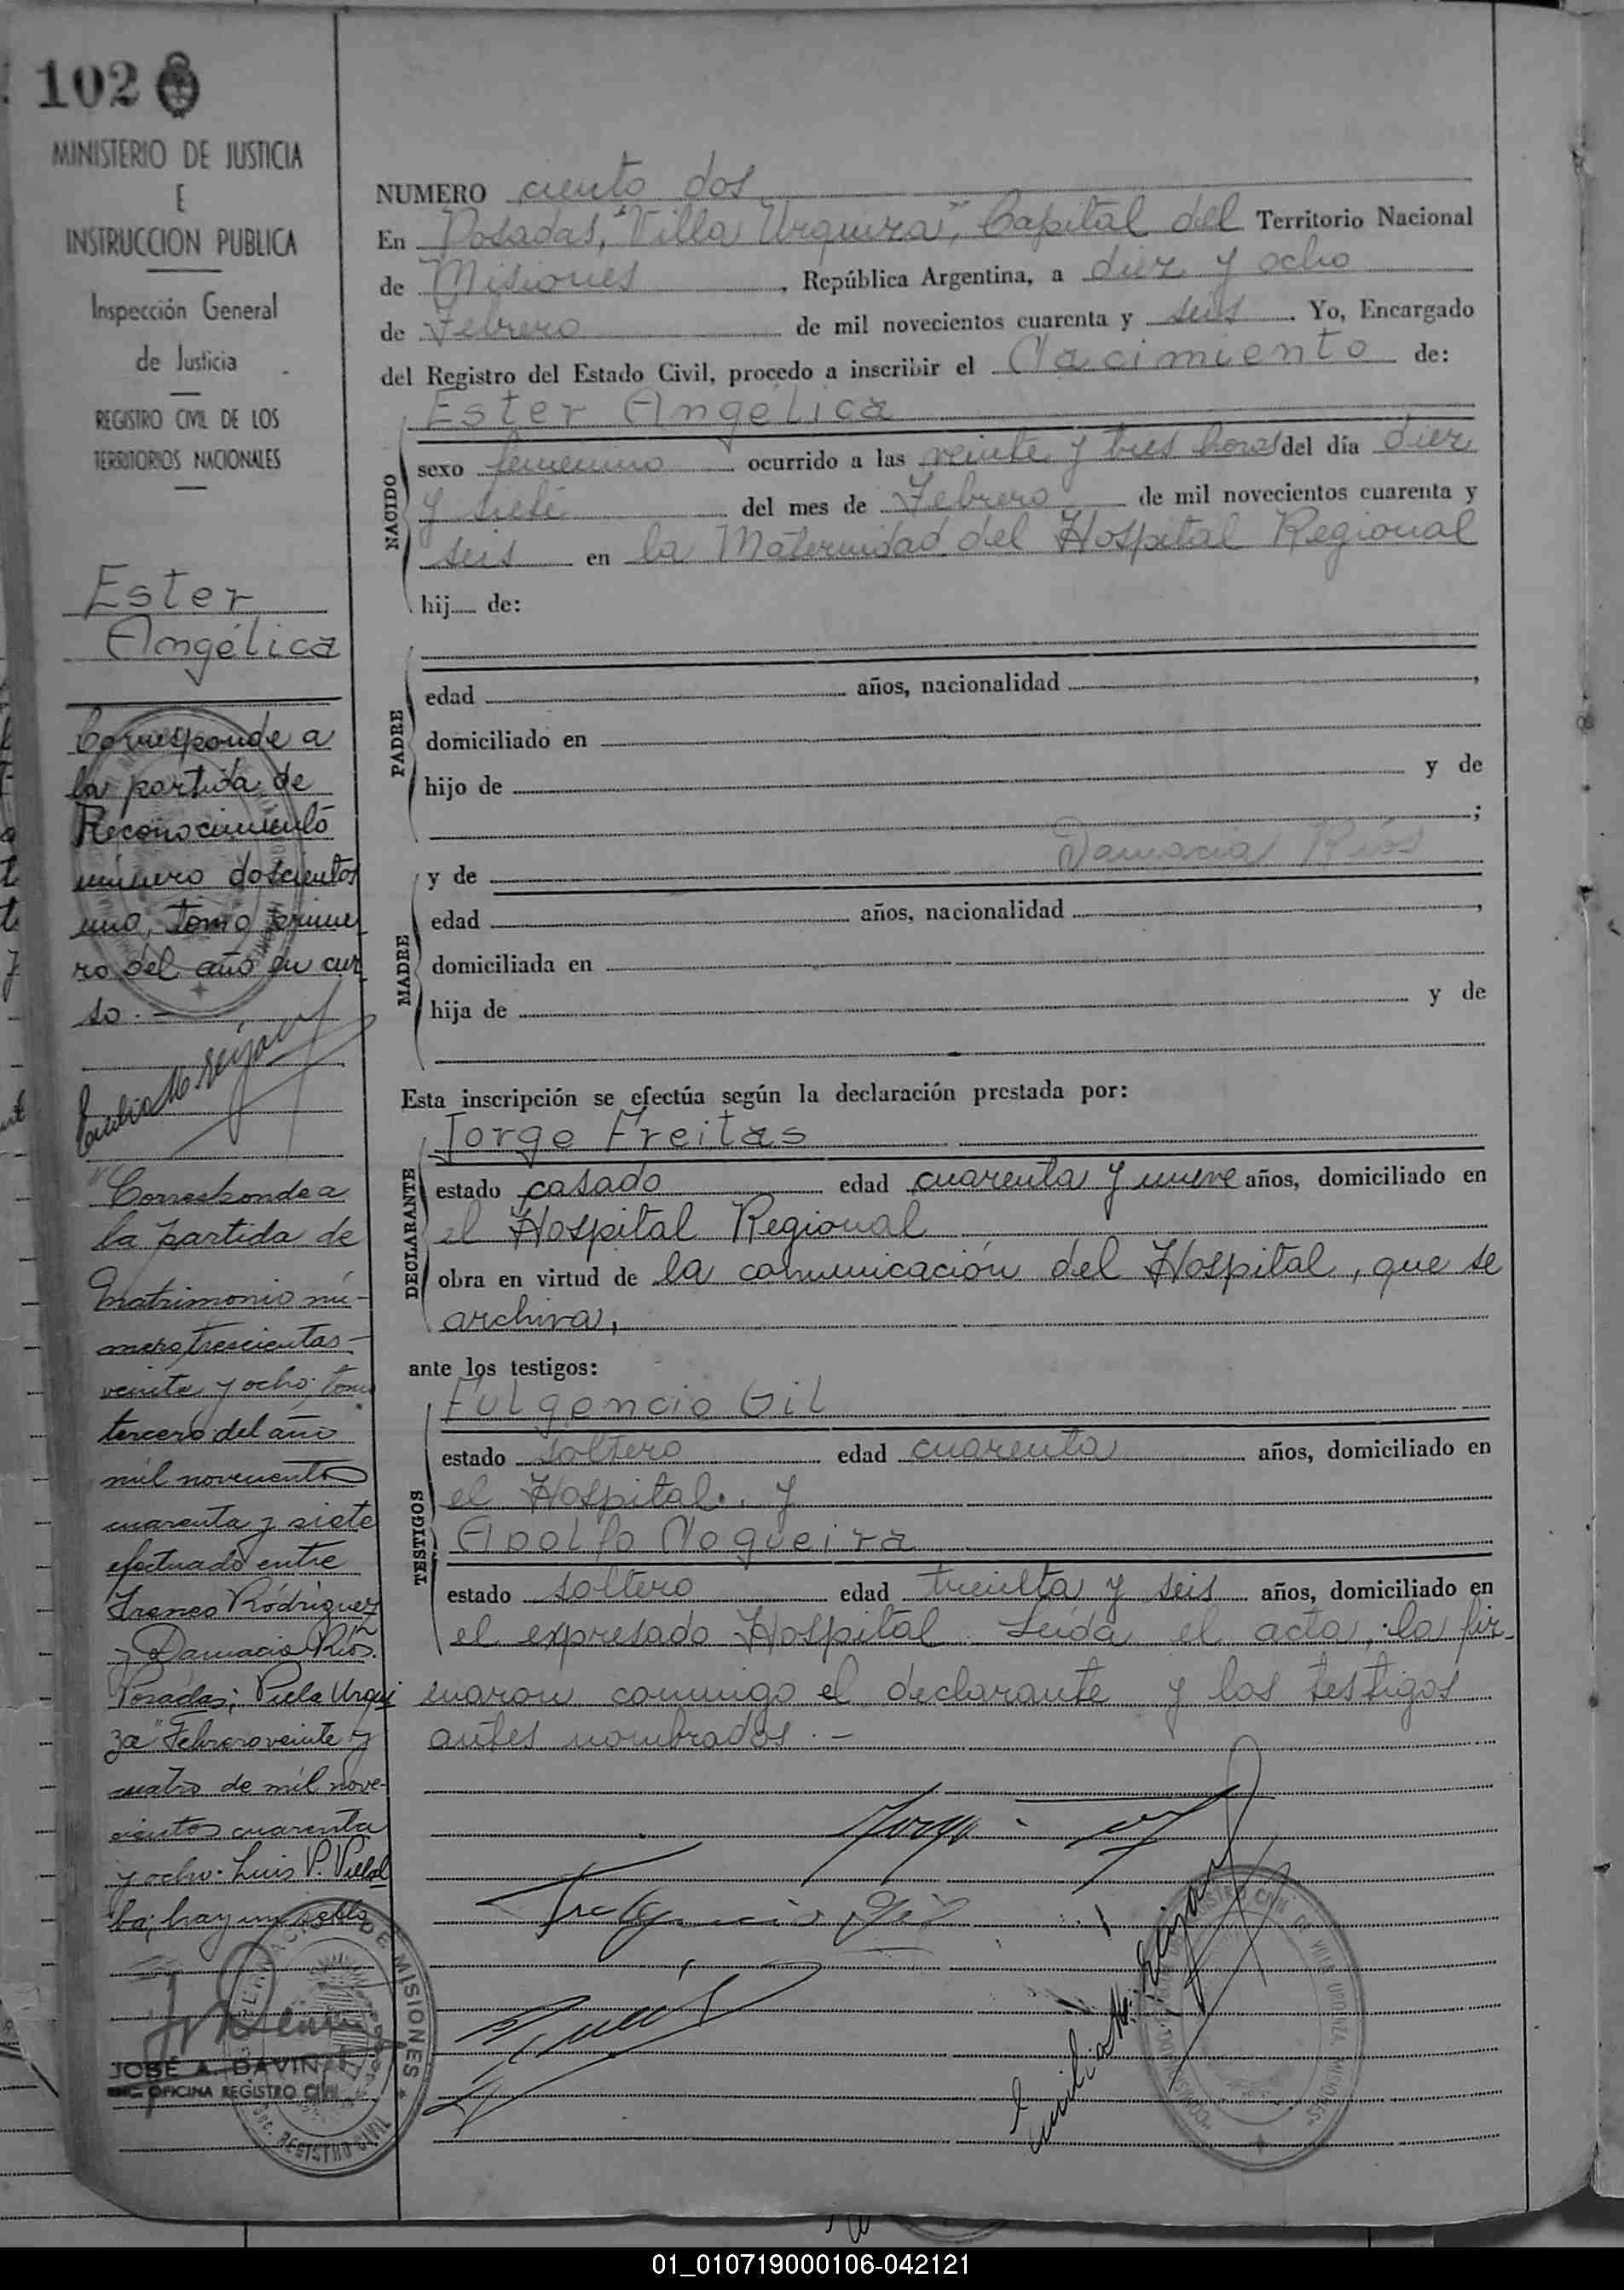 102
MINISTERIO DE JUSTICIA
E
INSTRUCCION PUBLICA
Inspección General
de Justicia
REGISTRO CIVIL DE LOS
TERRITORIOS NACIONALES
Ester
Angélica
Corresponde a
la partida de
Reconocimiento
número doscientos
uno, Tomo prime
ro del año en cur
so.-
Corresponde a
la partida de
Matrimonio nú-
mero trescientos
veinte y ocho; tomo
tercero del año
mil novecientos
cuarenta y siete
efectuado entre
Ireneo Rodríguez
y Damacia Ríos.
Posadas; Villa Urqui
za" Febrero veinte y
cuatro de mil nove-
cientos cuarenta
y ocho. Luis P. Villal
ba; hay un sello
JOSÉ A. DAVIÑA
OFICINA REGISTRO CIVIL
NUMERO ciento dos
En Posadas, "Villa Urquiza", Capital del Territorio Nacional
de Misiones, República Argentina, a diez y ocho
de Febrero de mil novecientos cuarenta y seis. Yo, Encargado
del Registro del Estado Civil, procedo a inscribir el Nacimiento de:
NACIDO
Ester Angélica
sexo femenino ocurrido a las veinte y tres horas del día diez
y siete del mes de Febrero de mil novecientos cuarenta y
seis en la Maternidad del Hospital Regional
hij de:
PADRE
edad años, nacionalidad ,
domiciliado en
hijo de y de
;
y de Damacia Ríos
MADRE
edad años, nacionalidad ,
domiciliada en
hija de y de
Esta inscripción se efectúa según la declaración prestada por:
DECLARANTE
Jorge Freitas
estado casado edad cuarenta y nueve años, domiciliado en
el Hospital Regional
obra en virtud de la comunicación del Hospital, que se
archiva,
ante los testigos:
TESTIGOS
Fulgencio Gil
estado soltero edad cuarenta años, domiciliado en
el Hospital. y
Adolfo Nogueira
estado soltero edad treinta y seis años, domiciliado en
el expresado Hospital. Leída el acta, la fir-
maron conmigo el declarante y los testigos
antes nombrados.-
01_010719000106-042121